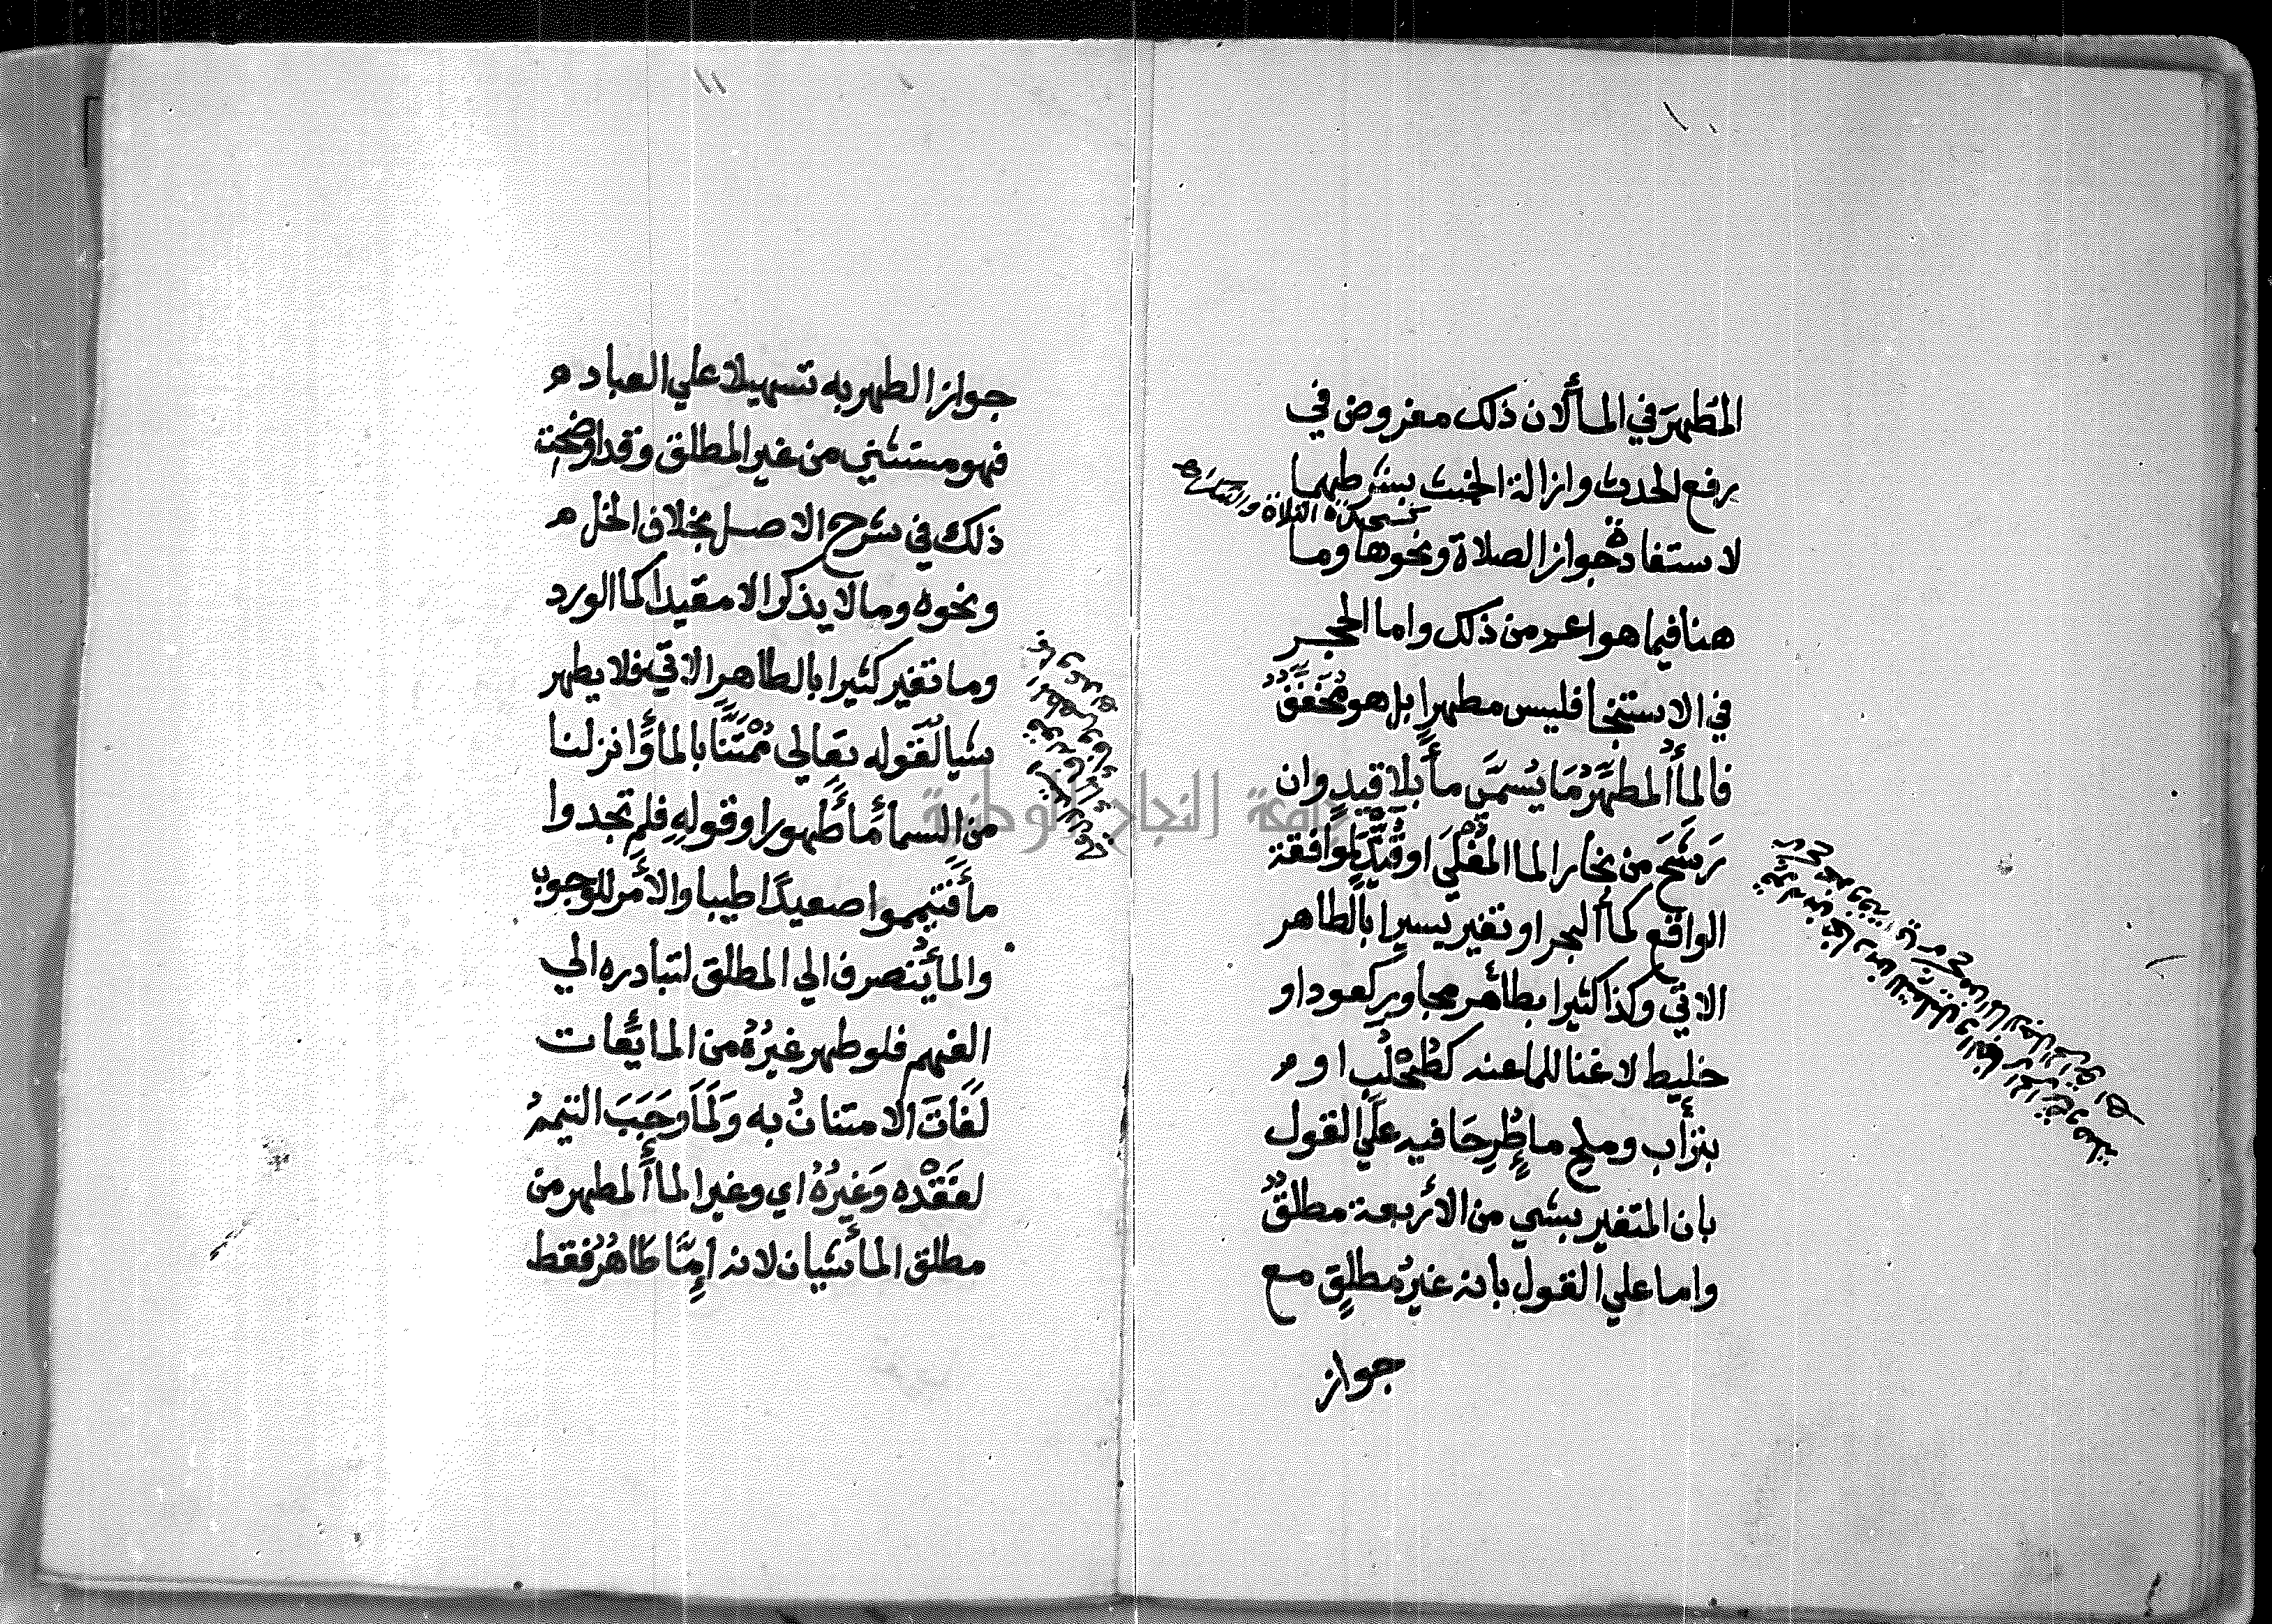 ١٠
المُطَهِرَ في الماءٔ لان ذلك مفروض في
رفع الحدث وازالة الخبث بشرطهما
لاستفادة جواز الصلاة ونحوها وما
هنا فيما هو اعم من ذلك واما الحجر
في الاستنجا فليس مطهرا بل هو مُخَفِّفٌ
فالمأ المطهِّرُ مَا يُسمَّى مأ بلا قيدٍ وان
رَشَحَ من بخار الما المُغْلَى او قُيِّدَ لموافقة
الواقع كمأ البحر او تغير يسيرا بالطاهر
الاتي وكذا كثيرا بطاهر مجاور كعود او
خليط لا غنا للما عنه كطُحْلُبٍ او م
بتراب وملح ما طُرِحَا فيه علي القول
بان المتغير بشي من الأربعة مطلقٌ
واما علي القول بانه غيرُ مطلقٍ مع
جواز
كسجدة التلاوة والشكر اهـ
١١
جواز الطهر به تسهيلا علي العباد م
فهو مستثني من غير المطلق وقد اوضحت
ذلك في شرح الاصل بخلاف الخل م
ونحوه وما لا يذكر الا مقيدا كما الورد
وما تغير كثيرا بالطاهر الاتي فلا يطهر
شيا لقوله تعالي مُمْتَنًّا بالمأ وانزلنا
من السمأ مأ طهورا وقولهِ فلم تجدوا
مأ فتيمموا صعيدًا طيبا والأمر للوجوب
والمأ ينصرف الي المطلق لتبادره الي
الفهم فلو طهر غيرُهُ من المايعات
لَفَاتَ الامتنانُ به ولَمَا وَجَبَ التيممُ
لفَقْدِه وَغَيرُهُ اي وغير المأ المطهر من
مطلق المأ شيان لانه إِمَّا طاهرٌ فقط
جامعة النجاح الوطنية